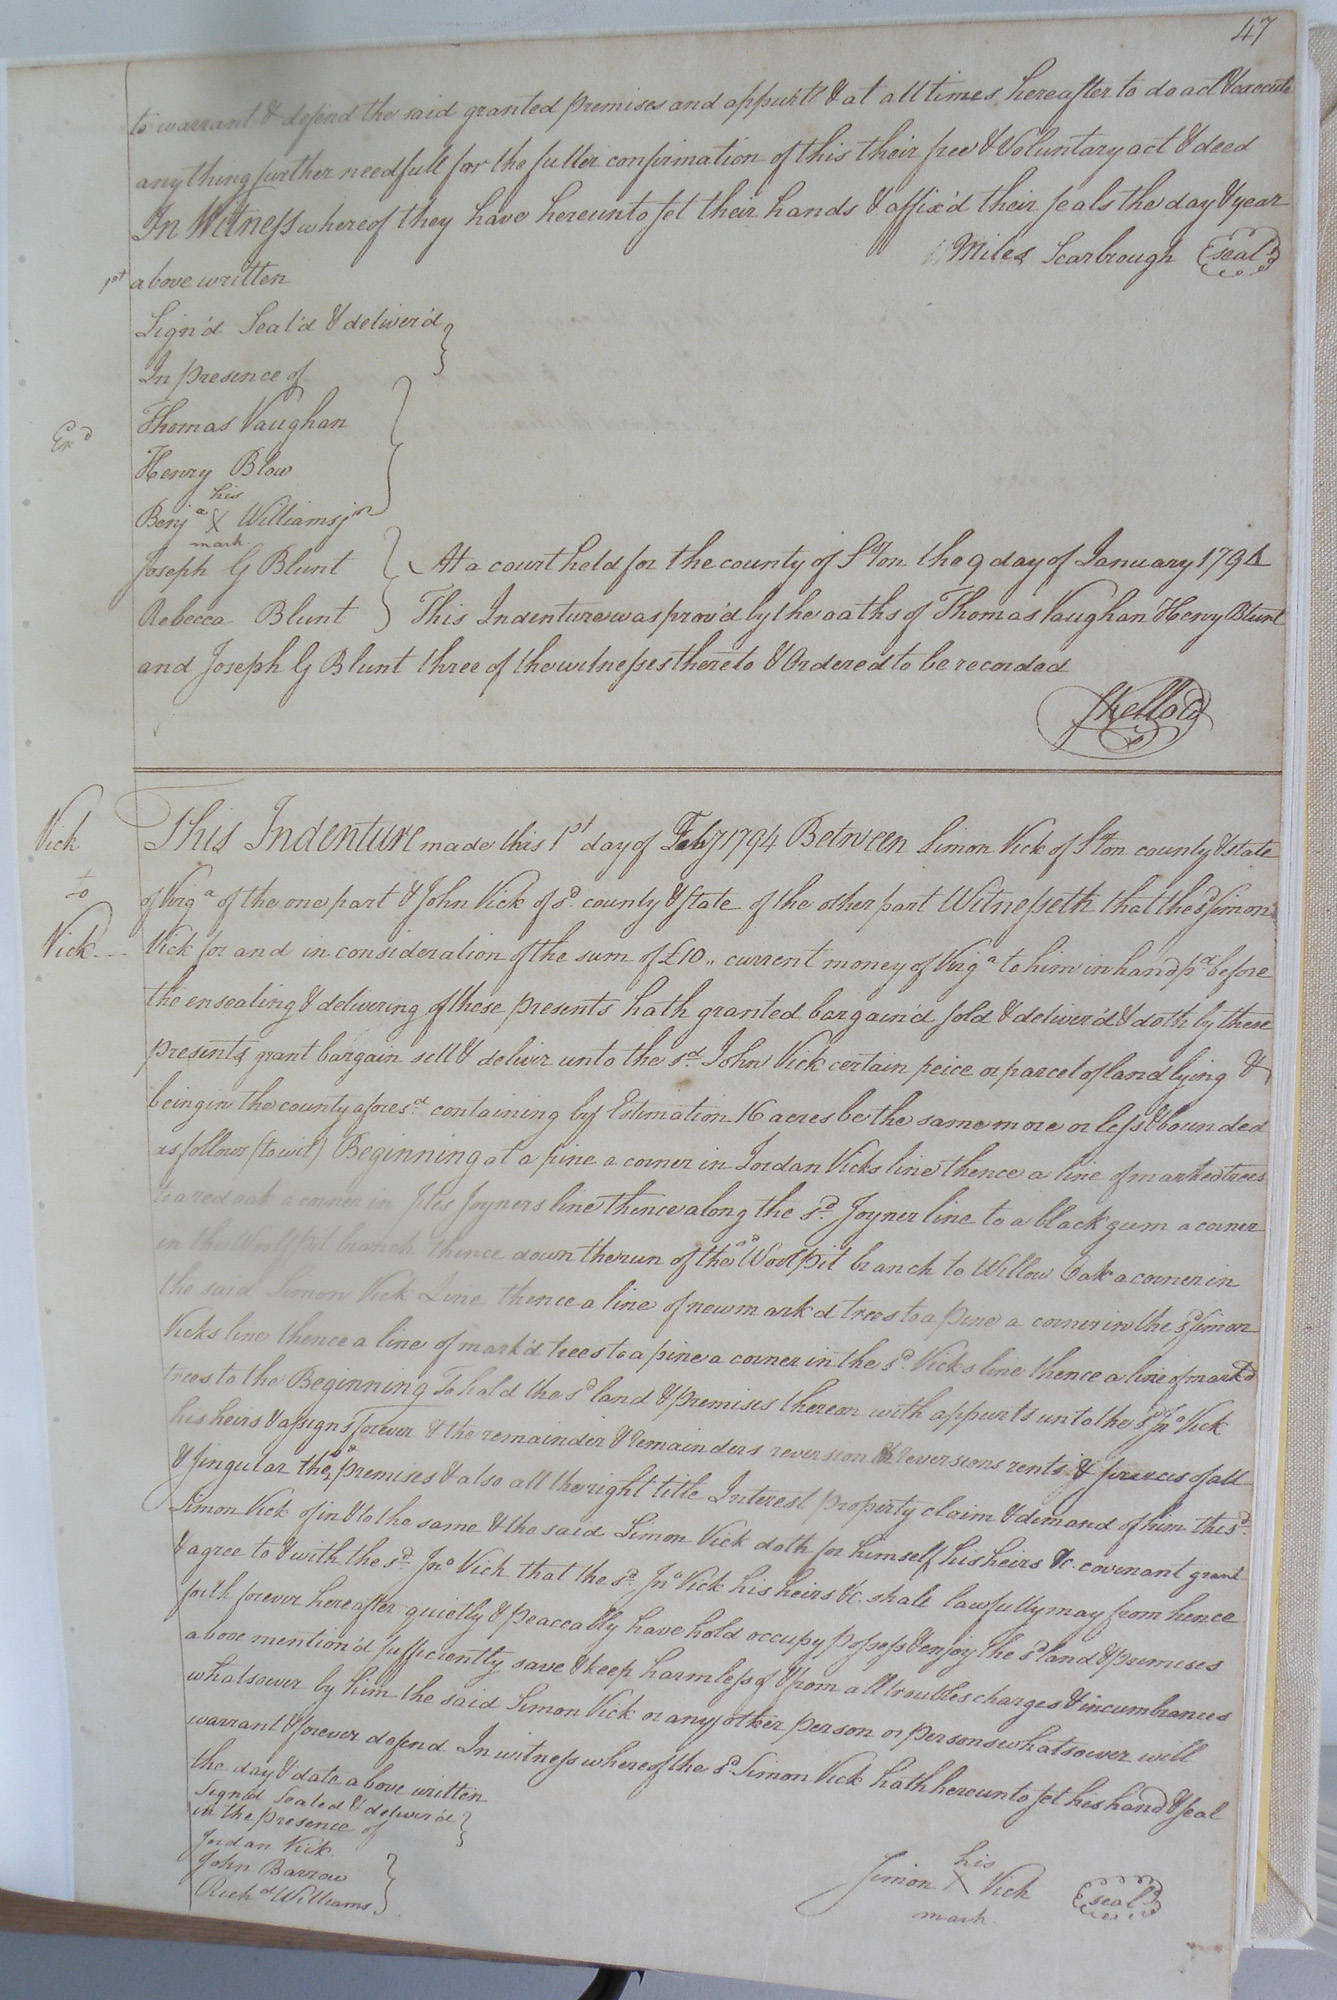 47
to warrant & defend the said granted premises and appurts & at all times hereafter to do act & execute
anything further needfull for the fuller confirmation of this their free & Voluntary act & deed
In Witness whereof they have hereunto set their hands & affix'd their seals the day & year
1st above written
Miles Scarbrough seal
Sign'd Seal'd & deliver'd
In presence of
Thomas Vaughan
Exd
Henry Blow
Benja his X mark Williams jr
Joseph G Blunt
At a court held for the county of S°ton the 9 day of January 1794
Rebecca Blunt
This Indenture was prov'd by the oaths of Thomas Vaughan Henry Blunt
and Joseph G Blunt three of the witnesses thereto & Ordered to be recorded
Vick
to
Vick
This Indenture made this 1st day of Feby 1794 Between Simon Vick of S°ton county & state
of Virga of the one part & John Vick of sd county & state of the other part Witnesseth that the sd Simon
Vick for and in consideration of the sum of £10,, current money of Virga to him in hand pd before
the ensealing & delivering of these presents hath granted bargain'd sold & deliver'd & doth by these
presents grant bargain sell & deliver unto the sd John Vick certain peice or parcel of land lying &
being in the county aforesd containing by Estimation 16 acres be the same more or less & bounded
as follows (to wit) Beginning at a pine a corner in Jordan Vicks line thence a line of marked trees
to a red oak a corner in Joyners line thence along the sd Joyner line to a black gum a corner
in the Woolfpit branch thence down the run of the sd Woolpit branch to Willow Oak a corner in
the said Simon Vick Line thence a line of new mark'd trees to a pine a corner in the sd Simon
Vicks line thence a line of mark'd trees to a pine a corner in the sd Vicks line thence a line of mark'd
trees to the Beginning To hold the sd land & premises thereon with appurts unto the sd Jno Vick
his heirs & assigns forever & the remainder & remainders reversion & reversions rents & of all
& singular the sd premises & also all the right title Interest property claim & demand of him the sd
Simon Vick of in & to the same & the said Simon Vick doth for himself his heirs &c. covenant grant
& agree to & with the sd Jno Vick that the sd Jno Vick his heirs &c. shall lawfully may from hence
forth forever hereafter quietly & peaceably have hold occupy possess & enjoy the sd land & premises
above mention'd sufficiently save & keep harmless of & from all troubles charges & incumbrances
whatsower by him the said Simon Vick or any other person or persons whatsower will
warrant & forever defend In witness whereof the sd Simon Vick hath hereunto set his hand & seal
the day & date above written
Sign'd Sealed & deliver'd
in the presence of
Jordan Vick
John Barrow
Richd Williams
Simon his X mark Vick seal